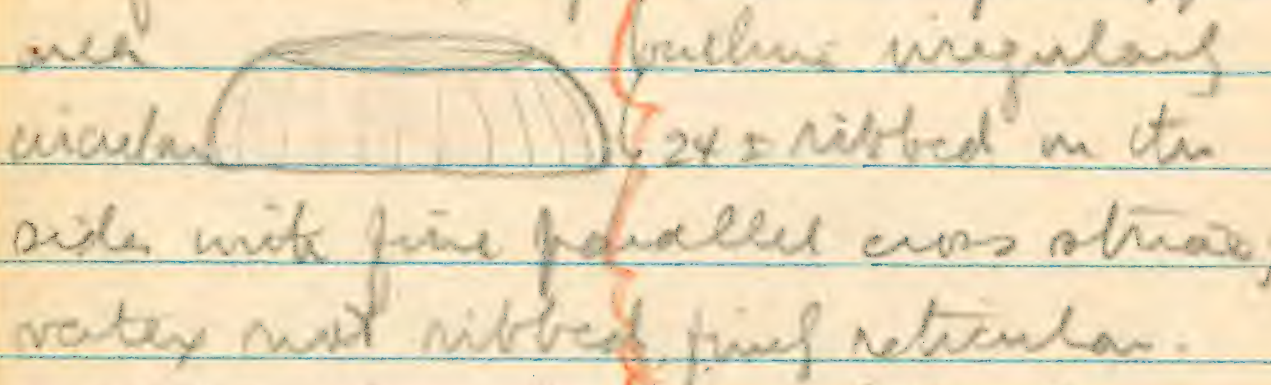 outline irregularly
circular 24 ± ribbed on the
sides with fine parallel cross striae,
vertex not ribbed finely reticular.